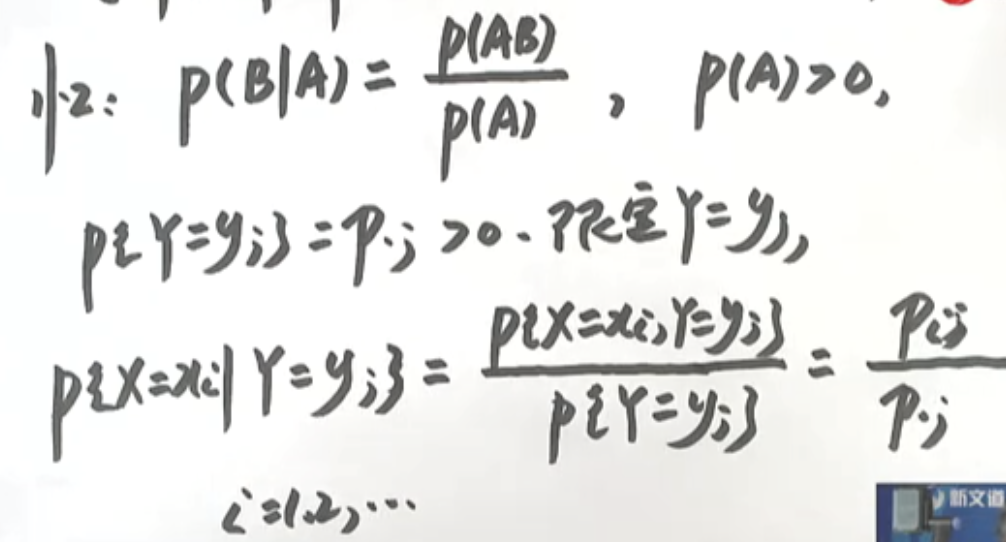 1.2: P(B|A) = P(AB) / P(A) , P(A)>0,
P{Y=yj} = P·j >0. 限定Y=yj,
P{X=xi|Y=yj} = P{X=xi,Y=yj} / P{Y=yj} = Pij / P·j
i=1.2,…
新文道